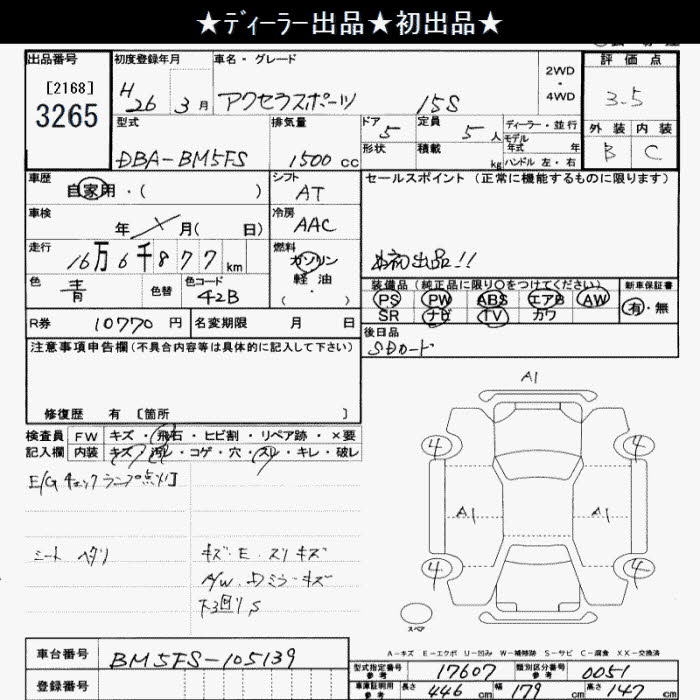 ★ディーラー出品★初出品★
出品番号
[2168]
3265
初度登録年月
H26 3月
車名・グレード
アクセラスポーツ 15S
2WD
・
4WD
評価点
3.5
外装 内装
B C
型式
DBA-BM5FS
排気量
1500cc
ドア
5
形状
定員
5人
積載
kg
ディーラー・並行
モデル
年式 年
ハンドル 左・右
車歴
自家用・( )
シフト
AT
セールスポイント (正常に機能するものに限ります)
お初出品!!
車検
年 月( 日)
冷房
AAC
走行
16万6千877km
燃料
ガソリン
軽油
( )
色
青
色替
色コード
42B
装備品(純正品に限り○をつけてください)
PS PW ABS エアB AW
SR ナビ TV カワ
新車保証書
有・無
R券
10770円
名変期限 月 日
後日品
SDカード
注意事項申告欄(不具合内容等は具体的に記入して下さい)
修復歴 有 [箇所 ]
検査員
記入欄
FW キズ・飛石・ヒビ割・リペア跡・×要
内装 キズ・汚レ・コゲ・穴・スレ・キレ・破レ
E/Gチェックランプ点灯
シート ヘタリ
キズ・E・スリキズ
A/W、Dミラーキズ
下3回りS
A1
4
4
A1
A1
4
4
スペア
A-キズ E-エクボ U-凹み W-補修跡 S-サビ C-腐食 XX-交換済
車台番号
BM5FS-105139
登録番号
型式指定番号
参考
17607
類別区分番号
参考
0051
車庫証明用
参考
長さ
446cm
幅
179cm
高さ
147cm